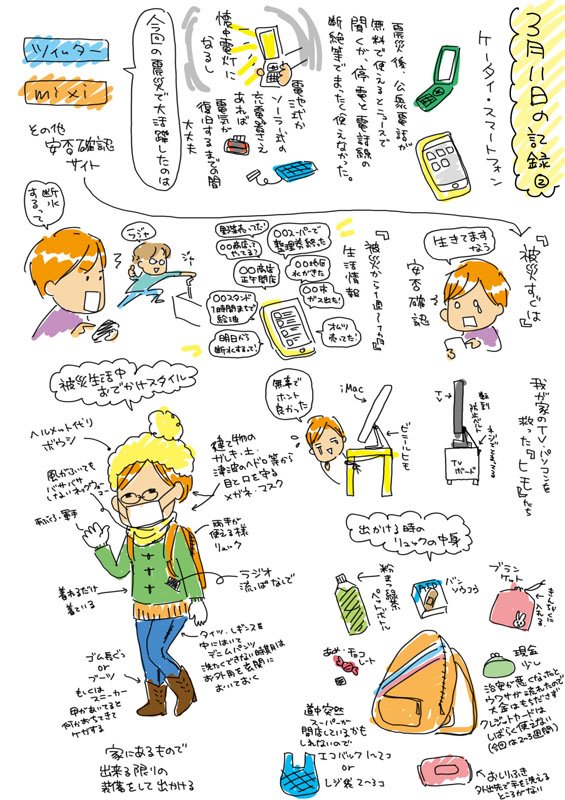 3月11日の記録②
ケータイ・スマートフォン
震災後、公衆電話が
無料で使えるとニュースで
聞くが、停電と電話線の
断絶等でまったく使えなかった。
電池式か
ソーラー式の
充電器さえ
あれば
電気が
復旧するまでの間
大丈夫
懐中電灯に
なるし
今回の震災で大活躍したのは
ツイッター
mixi
その他
安否確認
サイト
『被災すぐは』
生きてますなう
安否確認
『被災から1週〜1ヶ月』
生活情報
〇〇スーパーで
整理券終った
〇〇商店
正午開店
〇〇スタンド
1時間まちで
給油
明日から
断水するって!
オムツ
売ってた!
断水
するって
ラジャ
ジャー
我が家のTV・パソコンを
救った『ヒモ』たち
TV
ボード
iMac
ビニールヒモ
無事で
ホント
良かった
被災生活中
おでかけスタイル
ヘルメット代り
ボウシ
風がふいても
バサバサ
しないネックウォーマー
手ぶくろ、軍手
着れるだけ
着ている
ゴム長ぐつ
or
ブーツ
もしくは
スニーカー
甲があいてると
何かおちてきて
ケガする
建て物の
ガレキ・土
津波のヘドロ等から
目と口を守る
メガネ・マスク
両手が
使える様
リュック
ラジオ
流っぱなしで
タイツ、レギンスを
中にはいて
デニムパンツ
洗たくできない時期は
お外用を玄関に
おいておく
家にあるもので
出来る限りの
装備をして出かける
出かける時の
リュックの中身
粉まつ緑茶
ペットボトル
バンソウコウ
ブランケット
きんちゃくに
入れる
あめ・チョコレート
現金
少し
治安が悪くなったと
ウワサが流れたので
大金はもちださず
クレジットカードは
しばらく使えない
(今回は2〜3週間)
道中突然
スーパーが
開店しているかも
しれないので
エコバック1〜2コ
or
レジ袋2〜3コ
おしりふき
外出先で手を洗える
ところがない